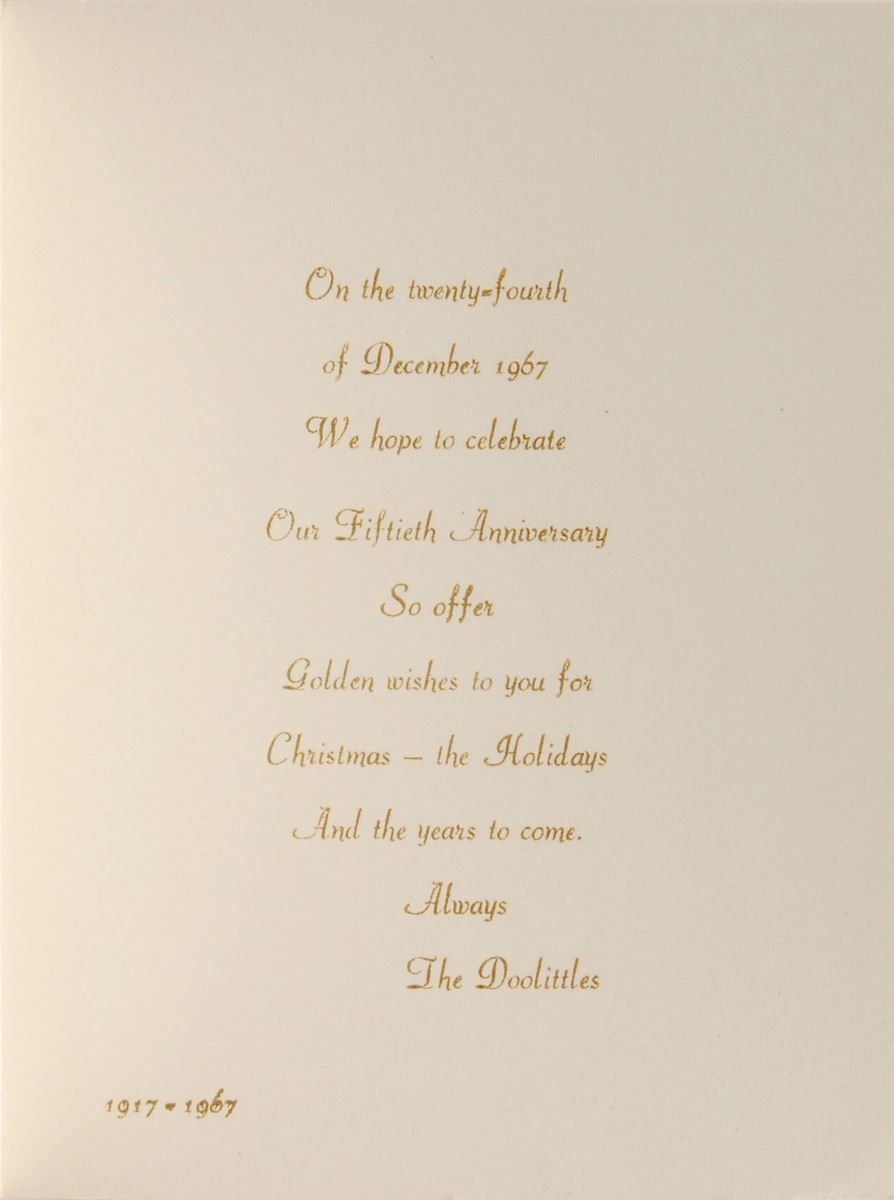 On the twenty-fourth
of December 1967
We hope to celebrate
Our Fiftieth Anniversary
So offer
Golden wishes to you for
Christmas — the Holidays
And the years to come.
Always
The Doolittles
1917 - 1967